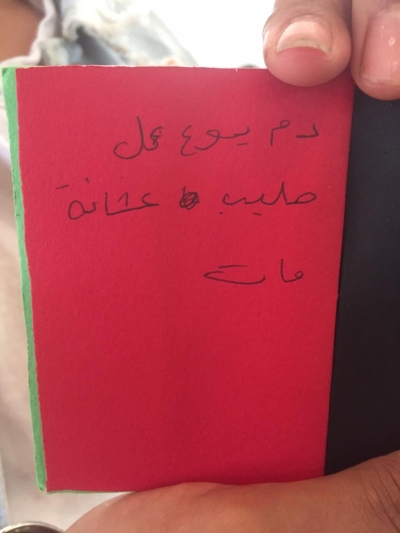 دم يسوع
صليب عشانة
مات